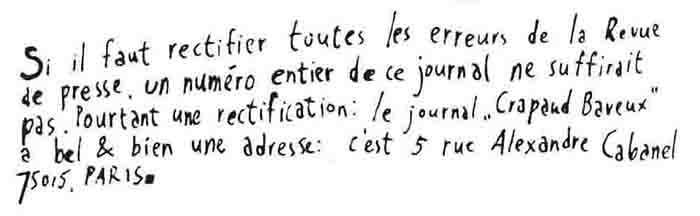 Si il faut rectifier toutes les erreurs de la Revue
de presse. un numéro entier de ce journal ne suffirait
pas. Pourtant une rectification: le journal „Crapaud Baveux"
a bel & bien une adresse: c'est 5 rue Alexandre Cabanel
75015. PARIS.